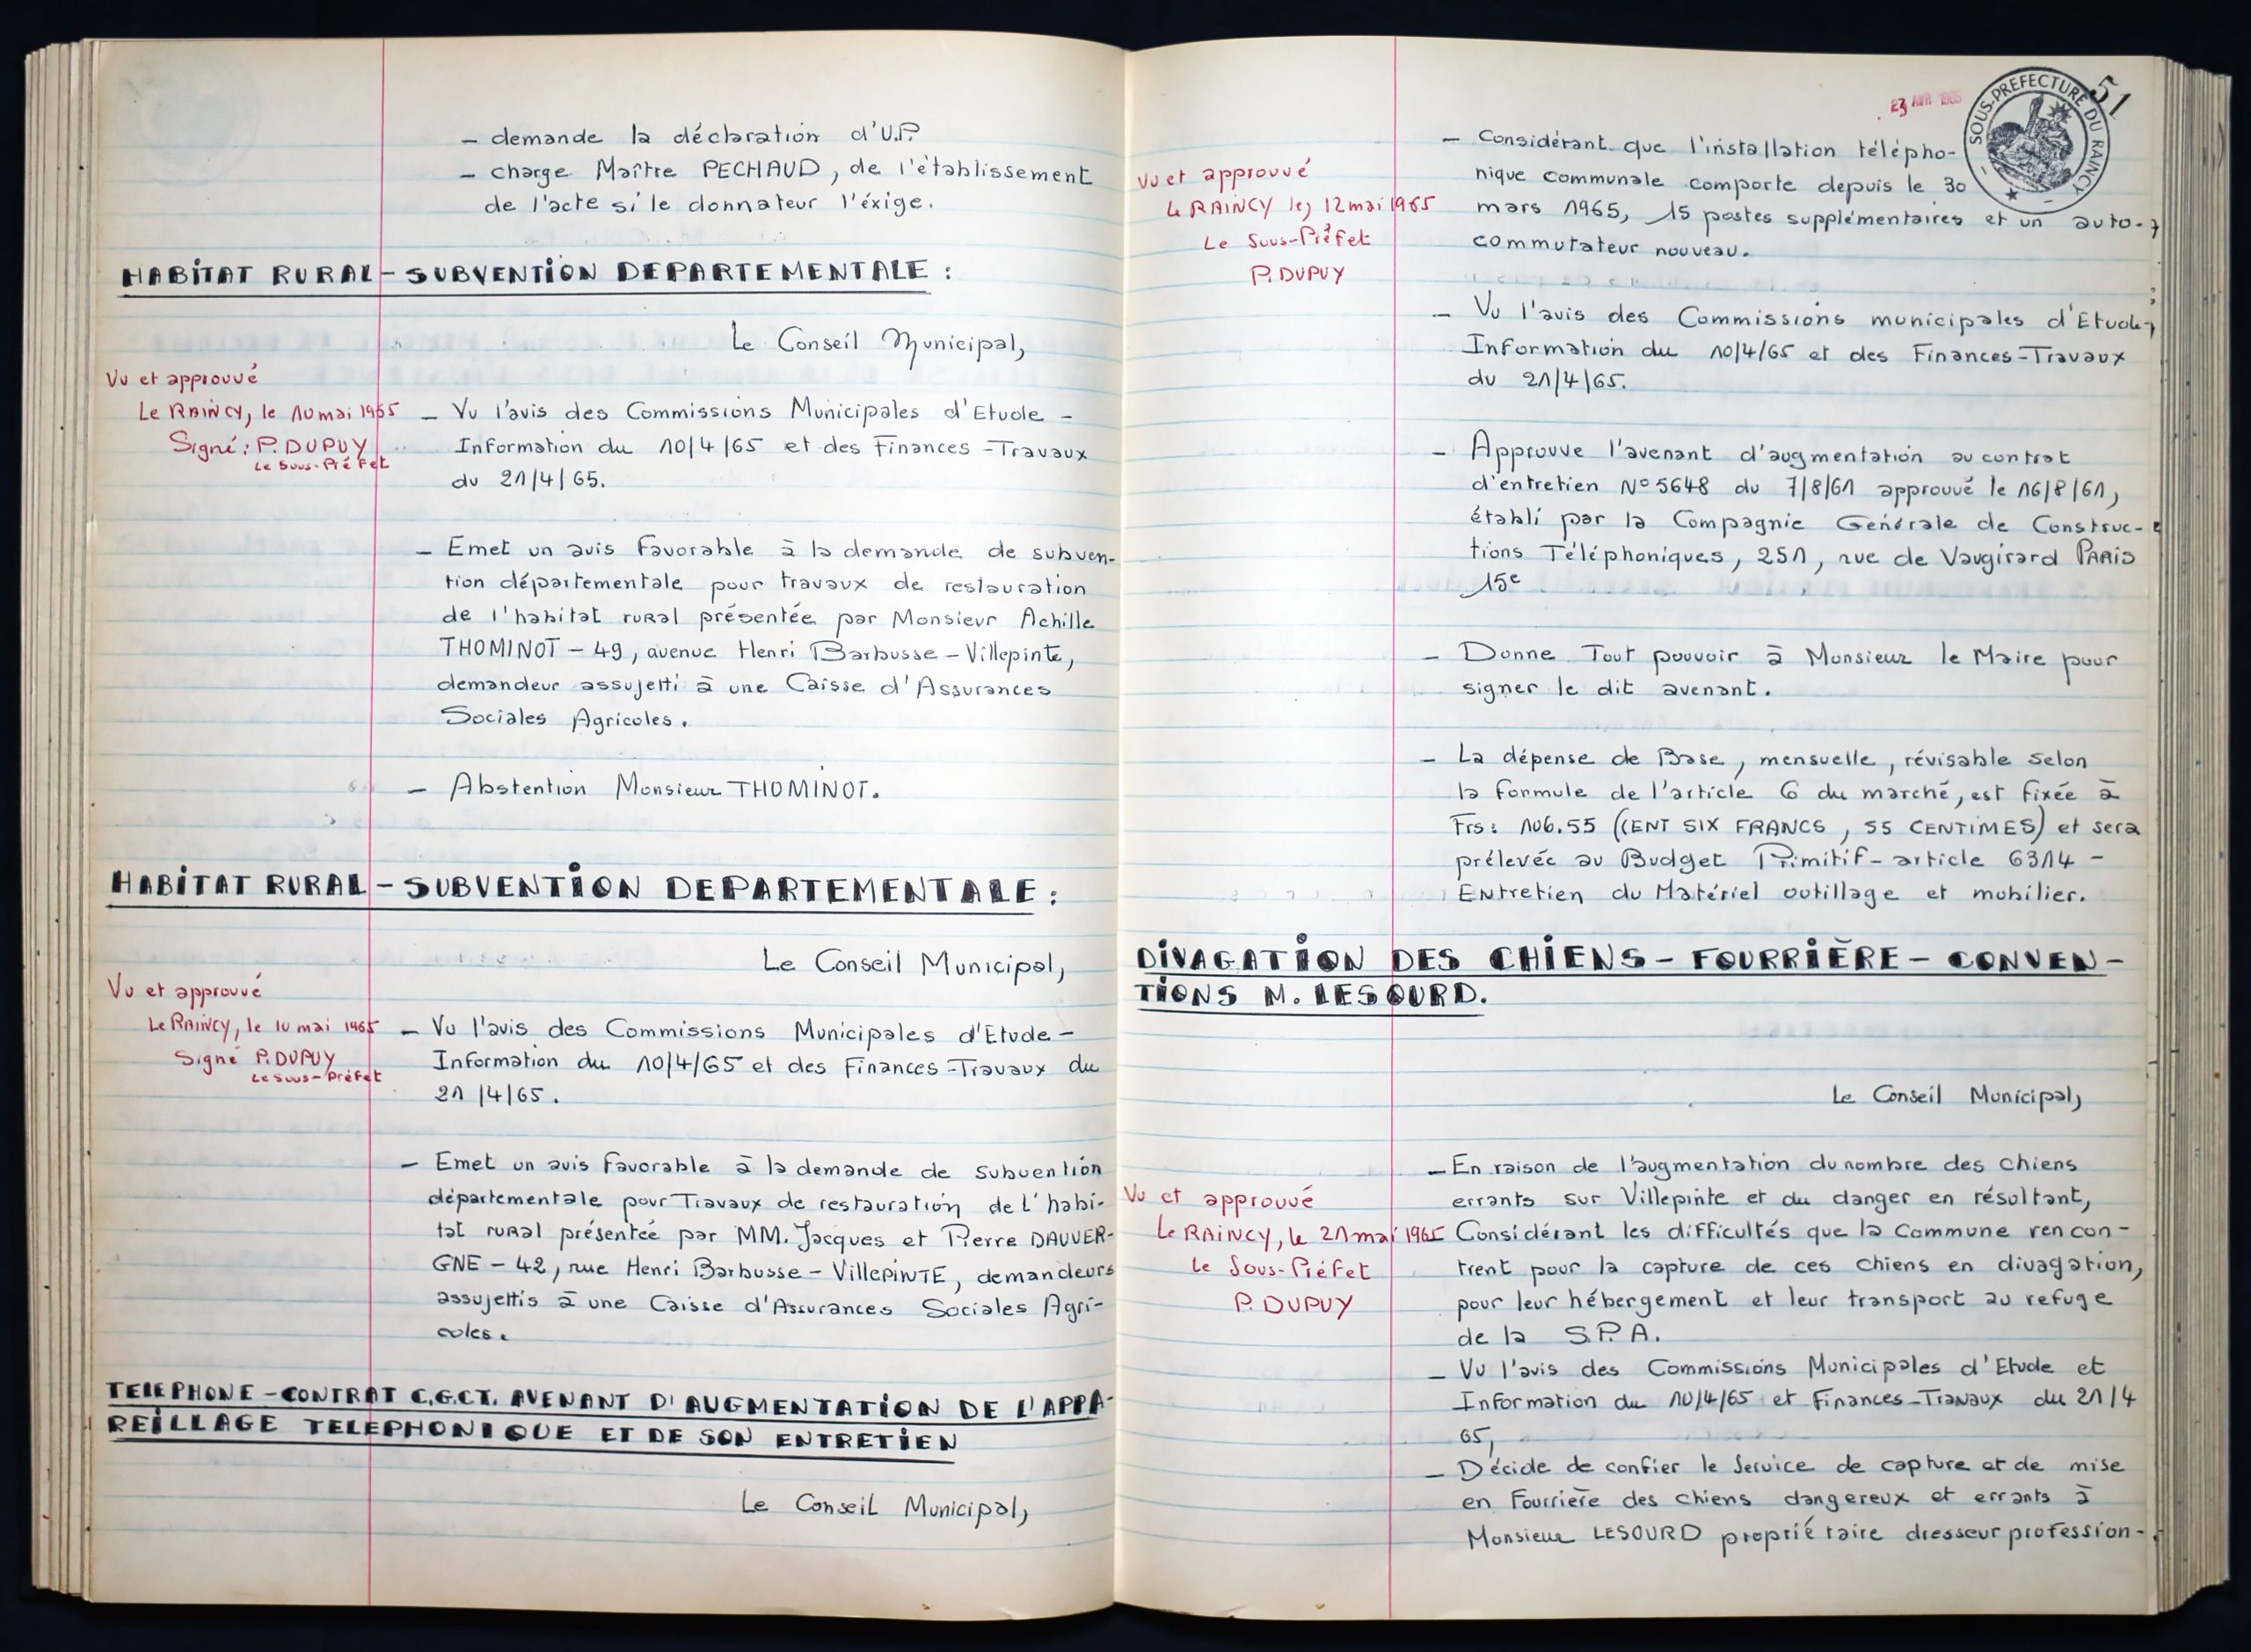 - demande la déclaration d'U.P.
- charge Maître PECHAUD, de l'établissement
de l'acte si le donnateur l'éxige.
HABITAT RURAL - SUBVENTION DEPARTEMENTALE :
Le Conseil Municipal,
Vu et approuvé
Le RAINCY, le 10 mai 1965
Signé : P. DUPUY
Le Sous-Préfet
- Vu l'avis des Commissions Municipales d'Etude -
Information du 10/4/65 et des Finances - Travaux
du 21/4/65.
- Emet un avis Favorable à la demande de subven-
tion départementale pour travaux de restauration
de l'habitat rural présentée par Monsieur Achille
THOMINOT - 49, avenue Henri Barbusse - Villepinte,
demandeur assujetti à une Caisse d'Assurances
Sociales Agricoles.
- Abstention Monsieur THOMINOT.
HABITAT RURAL - SUBVENTION DEPARTEMENTALE :
Le Conseil Municipal,
Vu et approuvé
Le RAINCY, le 10 mai 1965
Signé P. DUPUY
Le Sous-Préfet
- Vu l'avis des Commissions Municipales d'Etude -
Information du 10/4/65 et des Finances - Travaux du
21/4/65.
- Emet un avis Favorable à la demande de subvention
départementale pour Travaux de restauration de l'habi-
tat rural présentée par MM. Jacques et Pierre DAUVER-
GNE - 42, rue Henri Barbusse - VillEPINTE, demandeurs
assujettis à une Caisse d'Assurances Sociales Agri-
coles.
TELEPHONE - CONTRAT C.G.C.T. AVENANT D'AUGMENTATION DE L'APPA-
REILLAGE TELEPHONIQUE ET DE SON ENTRETIEN
Le Conseil Municipal,
23 AVR 1965
SOUS-PREFECTURE DU RAINCY
51
Vu et approuvé
Le RAINCY le, 12 mai 1965
Le Sous-Préfet
P. DUPUY
- Considérant que l'installation télépho-
nique communale comporte depuis le 30
mars 1965, 15 postes supplémentaires et un auto-
commutateur nouveau.
- Vu l'avis des Commissions municipales d'Etude,
Information du 10/4/65 et des Finances - Travaux
du 21/4/65.
- Approuve l'avenant d'augmentation au contrat
d'entretien N° 5648 du 7/8/61 approuvé le 16/8/61,
établi par la Compagnie Générale de Construc-
tions Téléphoniques, 251, rue de Vaugirard PARIS
15e
- Donne Tout pouvoir à Monsieur le Maire pour
signer le dit avenant.
- La dépense de Base, mensuelle, révisable selon
la formule de l'article 6 du marché, est fixée à
Frs : 106.55 (CENT SIX FRANCS, 55 CENTIMES) et sera
prélevée au Budget Primitif - article 6314 -
Entretien du Matériel outillage et mobilier.
DIVAGATION DES CHIENS - FOURRIÈRE - CONVEN-
TIONS M. LESOURD.
Le Conseil Municipal,
Vu et approuvé
Le RAINCY, le 21 mai 1965
Le Sous-Préfet
P. DUPUY
- En raison de l'augmentation du nombre des chiens
errants sur Villepinte et du danger en résultant,
Considérant les difficultés que la Commune rencon-
trent pour la capture de ces chiens en divagation,
pour leur hébergement et leur transport au refuge
de la S.P.A.
- Vu l'avis des Commissions Municipales d'Etude et
Information du 10/4/65 et Finances - Travaux du 21/4
65,
- Décide de confier le Service de capture et de mise
en Fourrière des chiens dangereux et errants à
Monsieur LESOURD propriétaire dresseur profession-